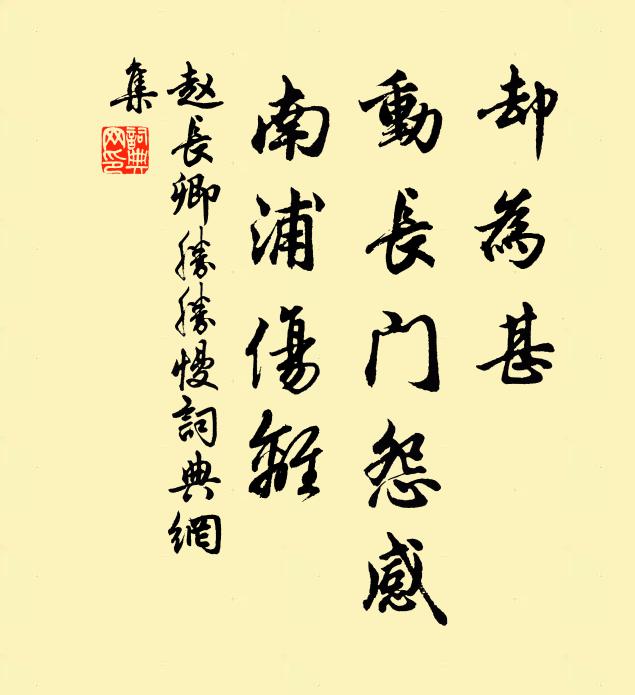 却為甚
動長门怨感
南浦傷離
赵長卿勝勝慢詞典網
集
詞典
网印